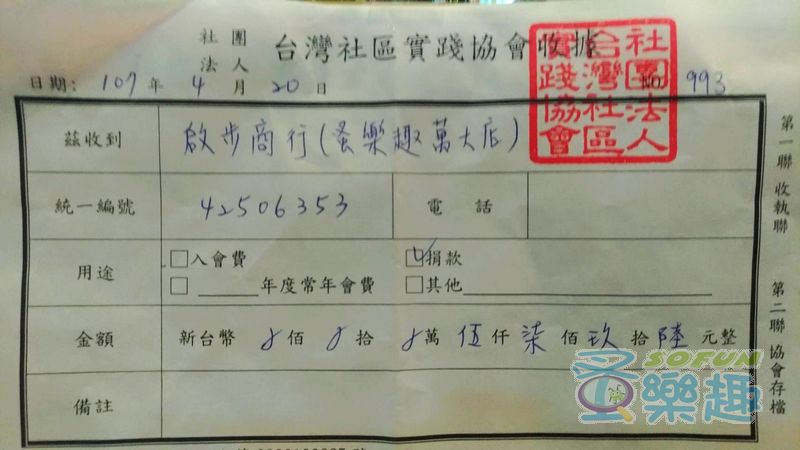 社團法人 台灣社區實踐協會收據
日期: 107 年 4 月 20 日 NO. 993
社團法人台灣社區實踐協會
茲收到 啟步商行(蚤樂趣萬大店)
統一編號 42506353 電話
用途 □入會費 ☑捐款
□ 年度常年會費 □其他
金額 新台幣 佰 拾 萬 伍仟柒佰玖拾陸元整
備註
第一聯 收執聯
第二聯 協會存檔
SOFUN
蚤樂趣